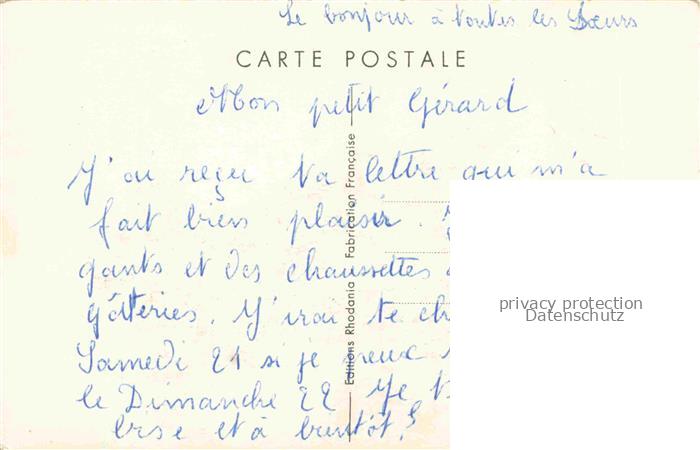 Le bonjour à toutes les Sœurs
CARTE POSTALE
Mon petit Gérard
J'ai reçu ta lettre qui m'a
fait bien plaisir.
gants et des chaussettes
gâteries. J'irai te ch
Samedi 21 si je peux
le Dimanche 22 Je
bise et à bientôt.
Editions Rhodania Fabrication Française
privacy protection
Datenschutz